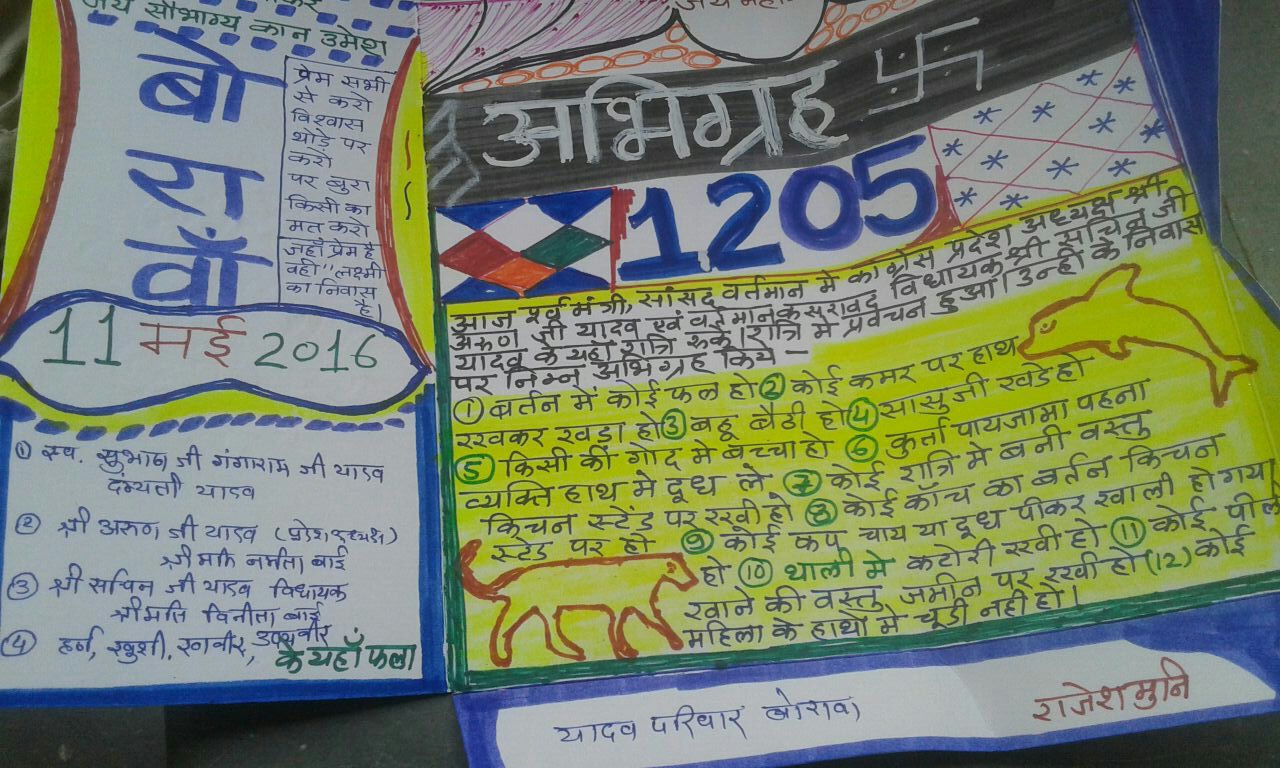 जय सौभाग्य कान उमेश
बो
रा
वाँ
प्रेम सभी
से करो
विश्वास
थोड़े पर
करो
पर बुरा
किसी का
मत करो
जहाँ प्रेम है
वही "लक्ष्मी
का निवास
है।
11 मई 2016
① स्व. सुभाष जी गंगाराम जी यादव
दमयती यादव
② श्री अरुण जी यादव (प्रदेशाध्यक्ष)
श्रीमति नर्मता बाई
③ श्री सचिन जी यादव विधायक
श्रीमति विनीता बाई
④ हर्ष, खुशी, रणवीर,
के यहाँ फला
जय महा
अभिग्रह 卐
1205
आज पूर्व मंत्री, सांसद वर्तमान मे कांग्रेस प्रदेश अध्यक्ष श्री
अरुण जी यादव एवं वर्तमान कसरावद विधायक श्री सचिन जी
यादव के यहाँ रात्रि रुके। रात्रि मे प्रवचन हुआ। उन्ही के निवास
पर निम्न अभिग्रह किये –
① बर्तन में कोई फल हो ② कोई कमर पर हाथ
रखकर खड़ा हो ③ बहू बैठी हो ④ सासुजी खडे हो
⑤ किसी की गोद मे बच्चा हो ⑥ कुर्ता पायजामा पहना
व्यक्ति हाथ मे दूध ले ⑦ कोई रात्रि मे बनी वस्तु
किचन स्टेंड पर रखी हो ⑧ कोई काँच का बर्तन किचन
स्टेंड पर हो ⑨ कोई कप चाय या दूध पीकर खाली हो गया
हो ⑩ थाली मे कटोरी रखी हो ⑪ कोई
खाने की वस्तु जमीन पर रखी हो (12) कोई
महिला के हाथो मे चूडी नही हो।
यादव परिवार बोरावा
राजेशमुनि